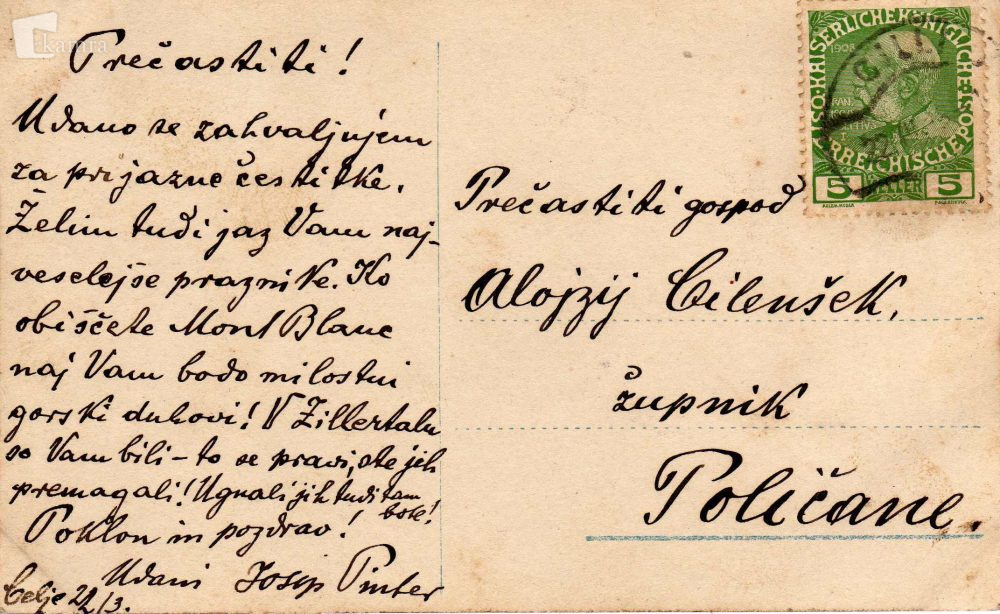 kamra
Prečastiti!
Udano se zahvaljujem
za prijazne čestitke.
Želim tudi jaz Vam naj-
veselejše praznike. Ko
obiščete Mont Blanc
naj Vam bodo milostni
gorski duhovi! V Zillertalu
so Vam bili – to se pravi, ste jih
premagali! Ugnali jih tudi tam
bote!
Poklon in pozdrav!
Udani Josip Pinter
Celje 22/3.
Prečastiti gospod
Alojzij Cilenšek,
župnik
Poličane.
KAISERLICHE KÖNIGLICHE
ÖSTERREICHISCHE POST
1908
5 HELLER 5
CILLI